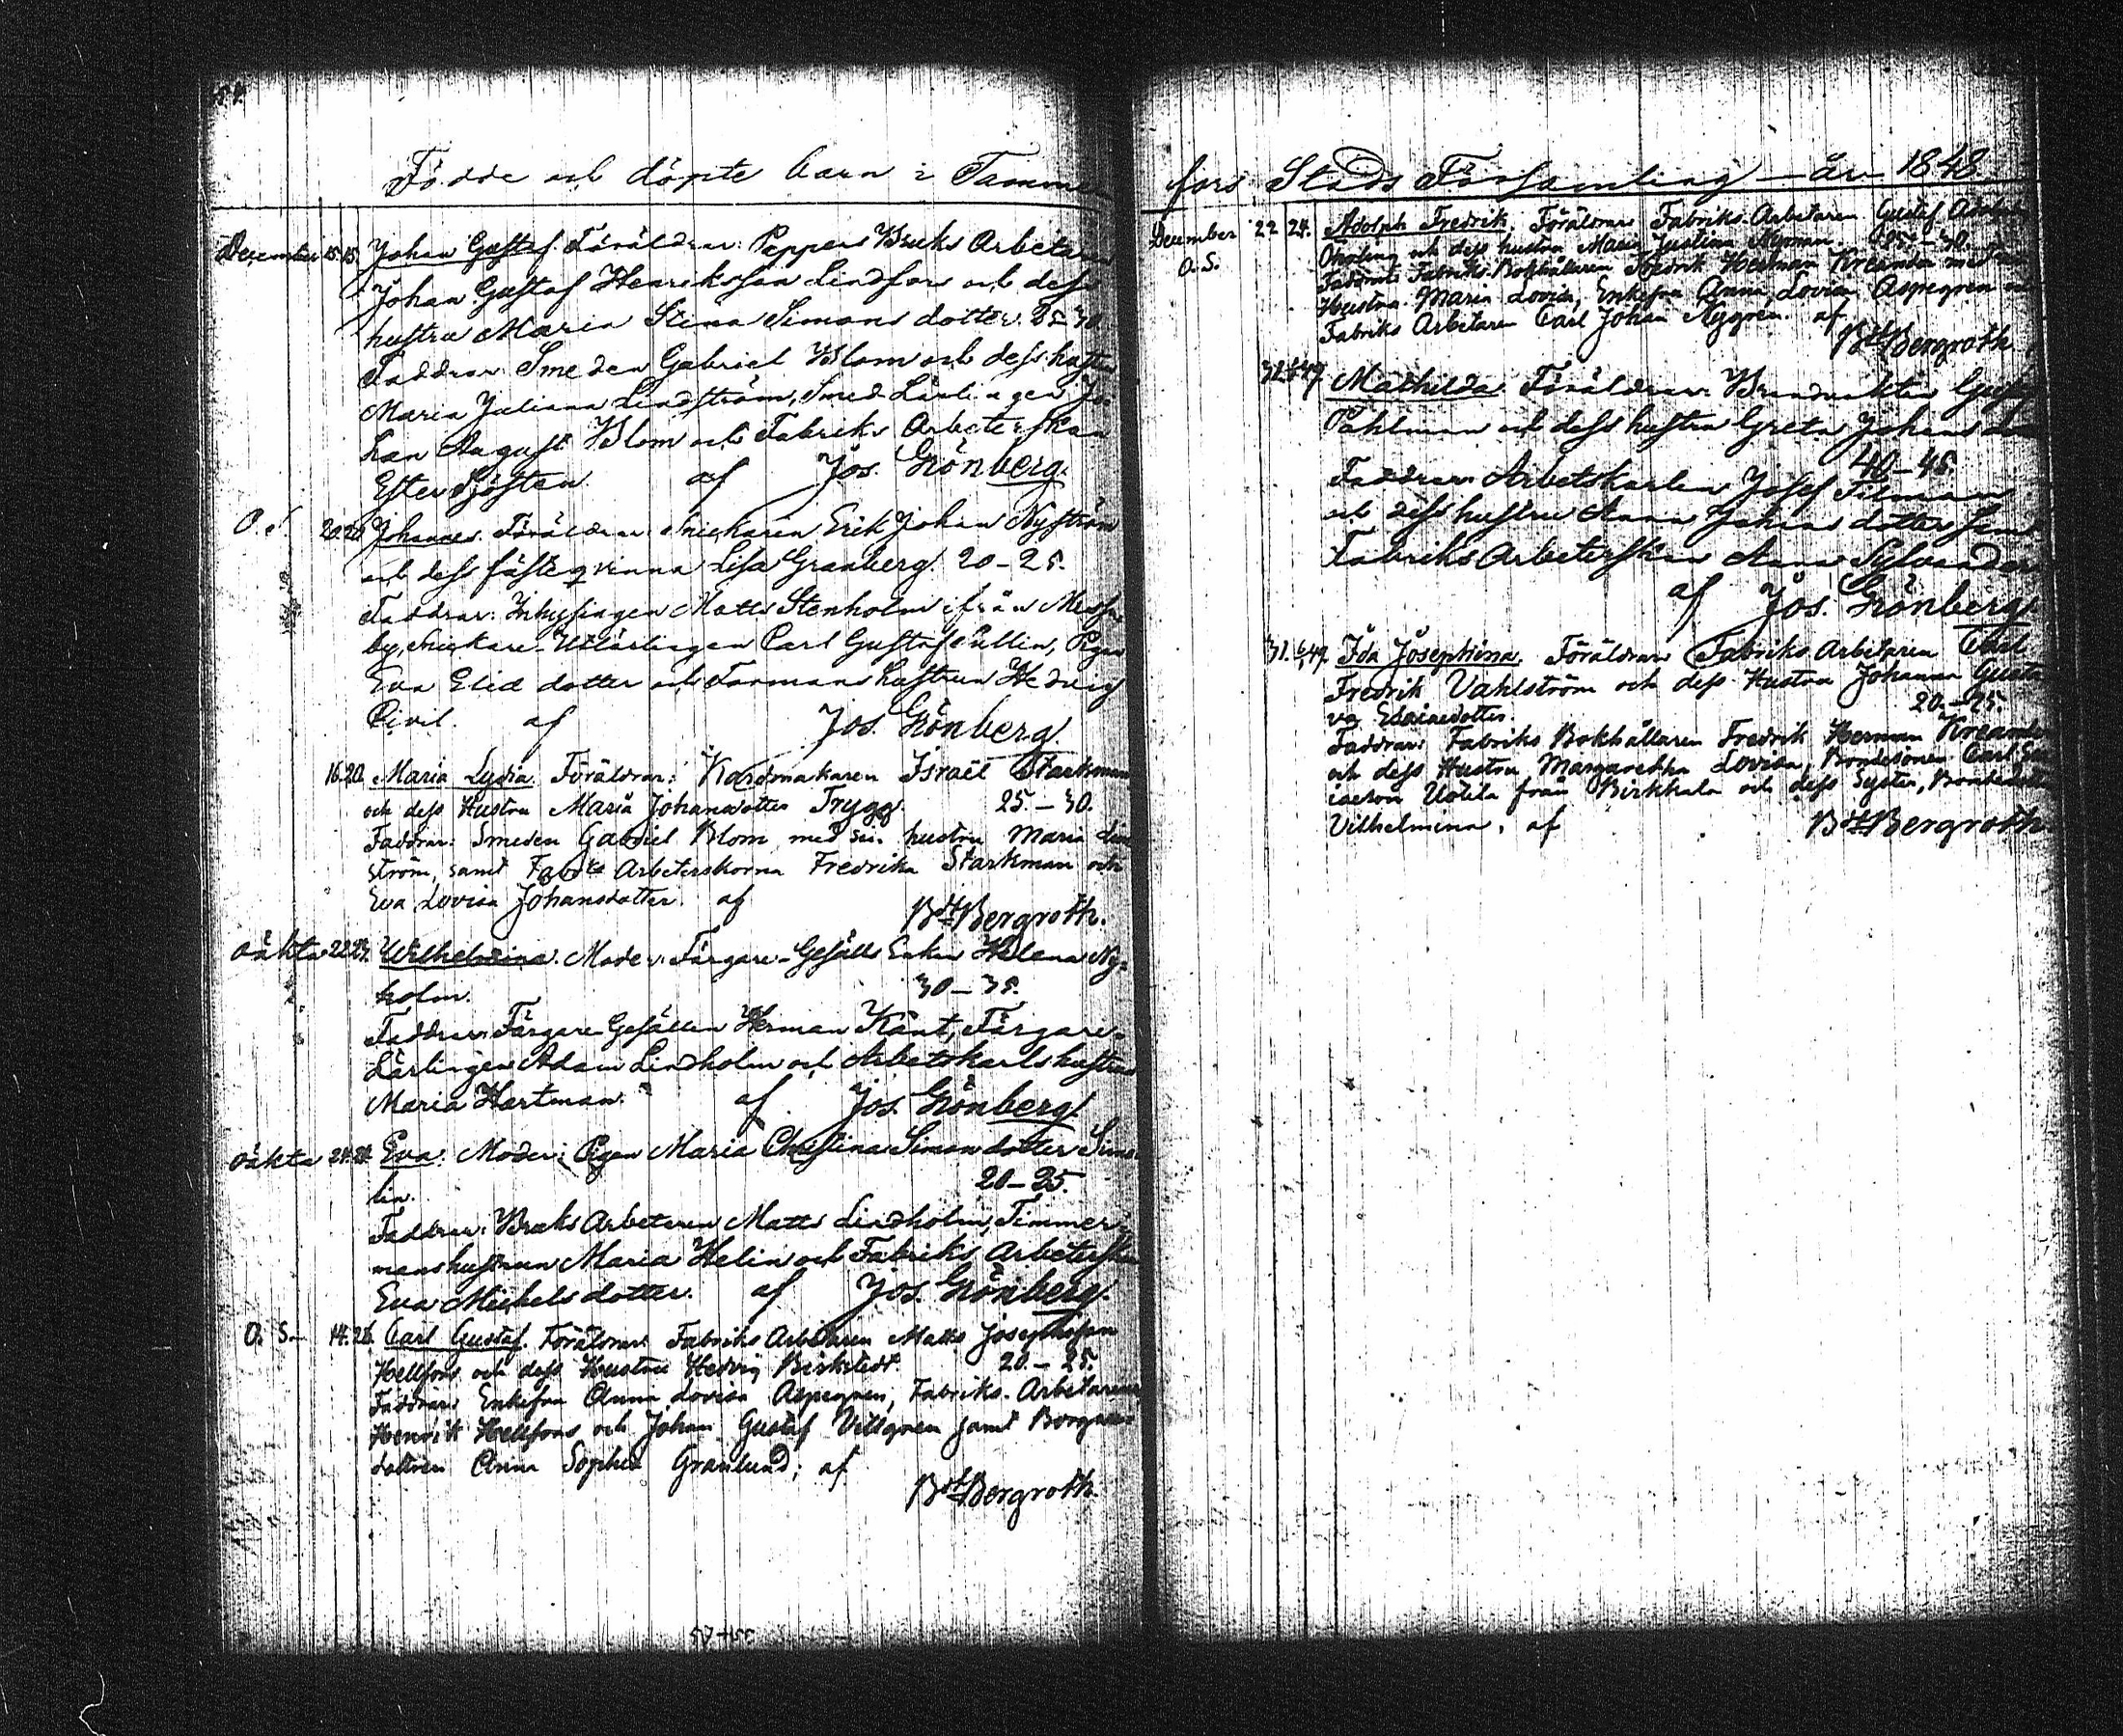 Födde och döpte barn i Tammer
December 15. 15. Johan Gustaf. Föräldrar: Pappers Bruks Arbetaren
Johan Gustaf Henriksson Lindfors och dess
hustru Maria Stina Simons dotter. 25-30.
Faddrar: Smeden Gabriel Blom och dess hustru
Maria Juliana Lindström, Smed-Lärlingen Jo-
han August Blom och Fabriks Arbeterskan
Ester Sjösten. af Jos. Grönberg.
O. S. 20. 20. Johannes. Föräldrar: Snickaren Erik Johan Nyström
och dess fästeqvinna Lisa Granberg. 20-25.
Faddrar: Inhysingen Matts Stenholm ifrån Messu-
by, Snickare-Utlärlingen Carl Gustaf Sallin, Pigan
Eva Elias dotter och Formans hustrun Hedvig
Civil. af Jos. Grönberg.
16. 20. Maria Lydia. Föräldrar: Kardmakaren Israël Starkman
och dess Hustru Maria Johansdotter Trygg. 25.-30.
Faddrar: Smeden Gabriel Blom med sin hustru Maria Lind
ström, samt Fabriks Arbeterskorna Fredrika Starkman och
Eva Lovisa Johansdotter. af
Bdt Bergroth.
oäkta 22. Wilhelmina. Moder: Färgare-Gesälls Enkan Helena Ny-
holm. 30-35.
Faddrar: Färgare-Gesällen Herman Känt, Färgare-
Lärlingen Adam Lindholm och Arbetskarls hustrun
Maria Hartman. af Jos. Grönberg.
oäkta 24. 24. Eva. Moder: Pigan Maria Christina Simons dotter Sime-
lin. 20-25.
Faddrar: Bruks Arbetaren Matts Lindholm, Timmer-
manshustrun Maria Helin och Fabriks Arbeterskan
Eva Michels dotter. af Jos. Grönberg.
O. S. 14. 26. Carl Gustaf. Föräldrar: Fabriks Arbetaren Matts Josephsson
Hellfors och dess Hustru Hedvig Birkstedt. 20.-25.
Faddrar: Enkefru Anna Lovisa Aspegren, Fabriks-Arbetarene
Henrik Hellfors och Johan Gustaf Villgren samt Borgare-
dottren Anna Sophia Granlund; af
Bdt Bergroth.
fors Stads Församling år 1848.
December 22 24. Adolph Fredrik, Föräldrar Fabriks-Arbetaren Gustaf Adolph
O. S. och dess hustru Maria Justina Nyman. 25.-30.
Faddrar: Fabriks-Bokhållaren Fredrik Herman Kreander med
Hustru Maria Lovisa, Enkefru Anna Lovisa Aspegren
Fabriks Arbetaren Carl Johan Nygren. af
Bdt Bergroth.
31. Mathilda. Föräldrar: Brandvakten Gustaf
Påhlman och dess hustru Greta Johans
40-45.
Faddrar: Arbetskarlen Josef Filman
och dess hustru Anna Johans dotter
Fabriks Arbeterskan Anna Sylvander
af Jos. Grönberg.
31. 6/1 49. Ida Josephina. Föräldrar Fabriks Arbetaren Carl
Fredrik Vahlström och dess Hustru Johanna Gusta
va 20.-25.
Faddrar: Fabriks Bokhållaren Fredrik Herman Kreander
och dess Hustru Margaretha Lovisa, Bondesonen Carl
Uotila från Birkkala och dess Syster, Bonde
Vilhelmina, af Bdt Bergroth.